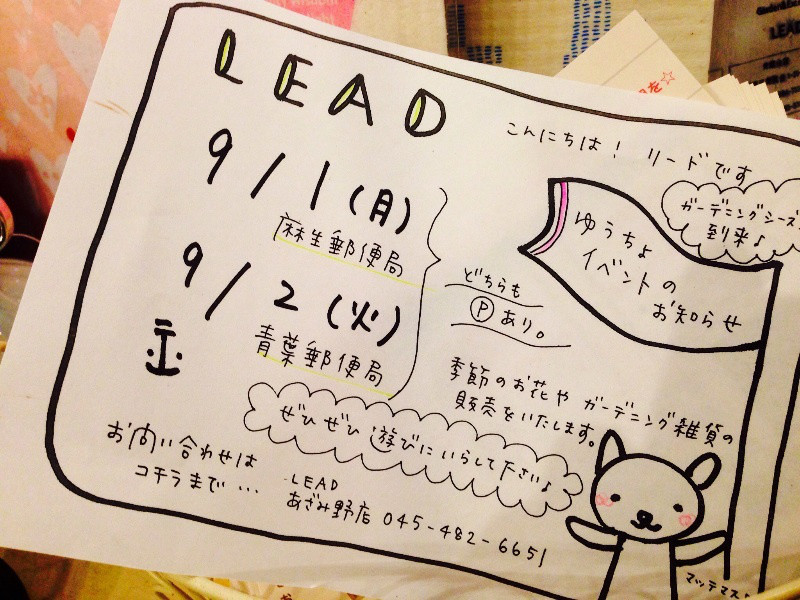 LEAD
こんにちは! リードです
ガーデニングシーズ
到来♪
ゆうちょ
イベントの
お知らせ
9/1(月)
麻生郵便局
9/2(火)
青葉郵便局
どちらも
Ⓟあり。
季節のお花や ガーデニング雑貨の
販売をいたします。
ぜひぜひ 遊びにいらして下さい♪
お問い合わせは
コチラまで…
LEAD
あざみ野店 045-482-6651
マッテマス
LEAD